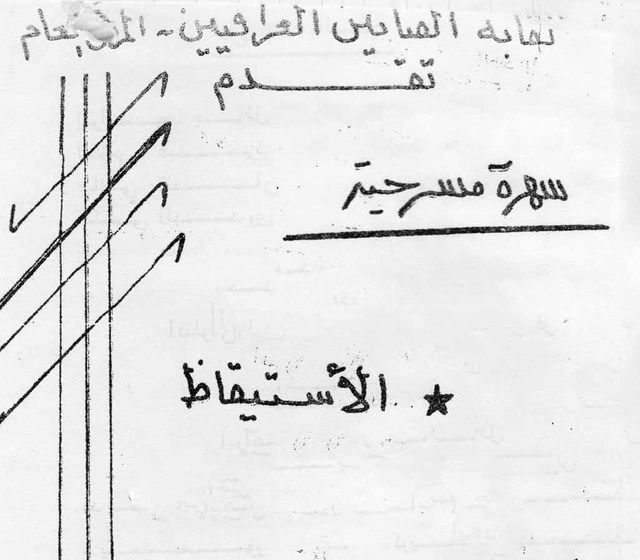 نقابة الفنانين العراقيين - المركز العام
تقـــــدم
سهرة مسرحية
الأستيقاظ ★